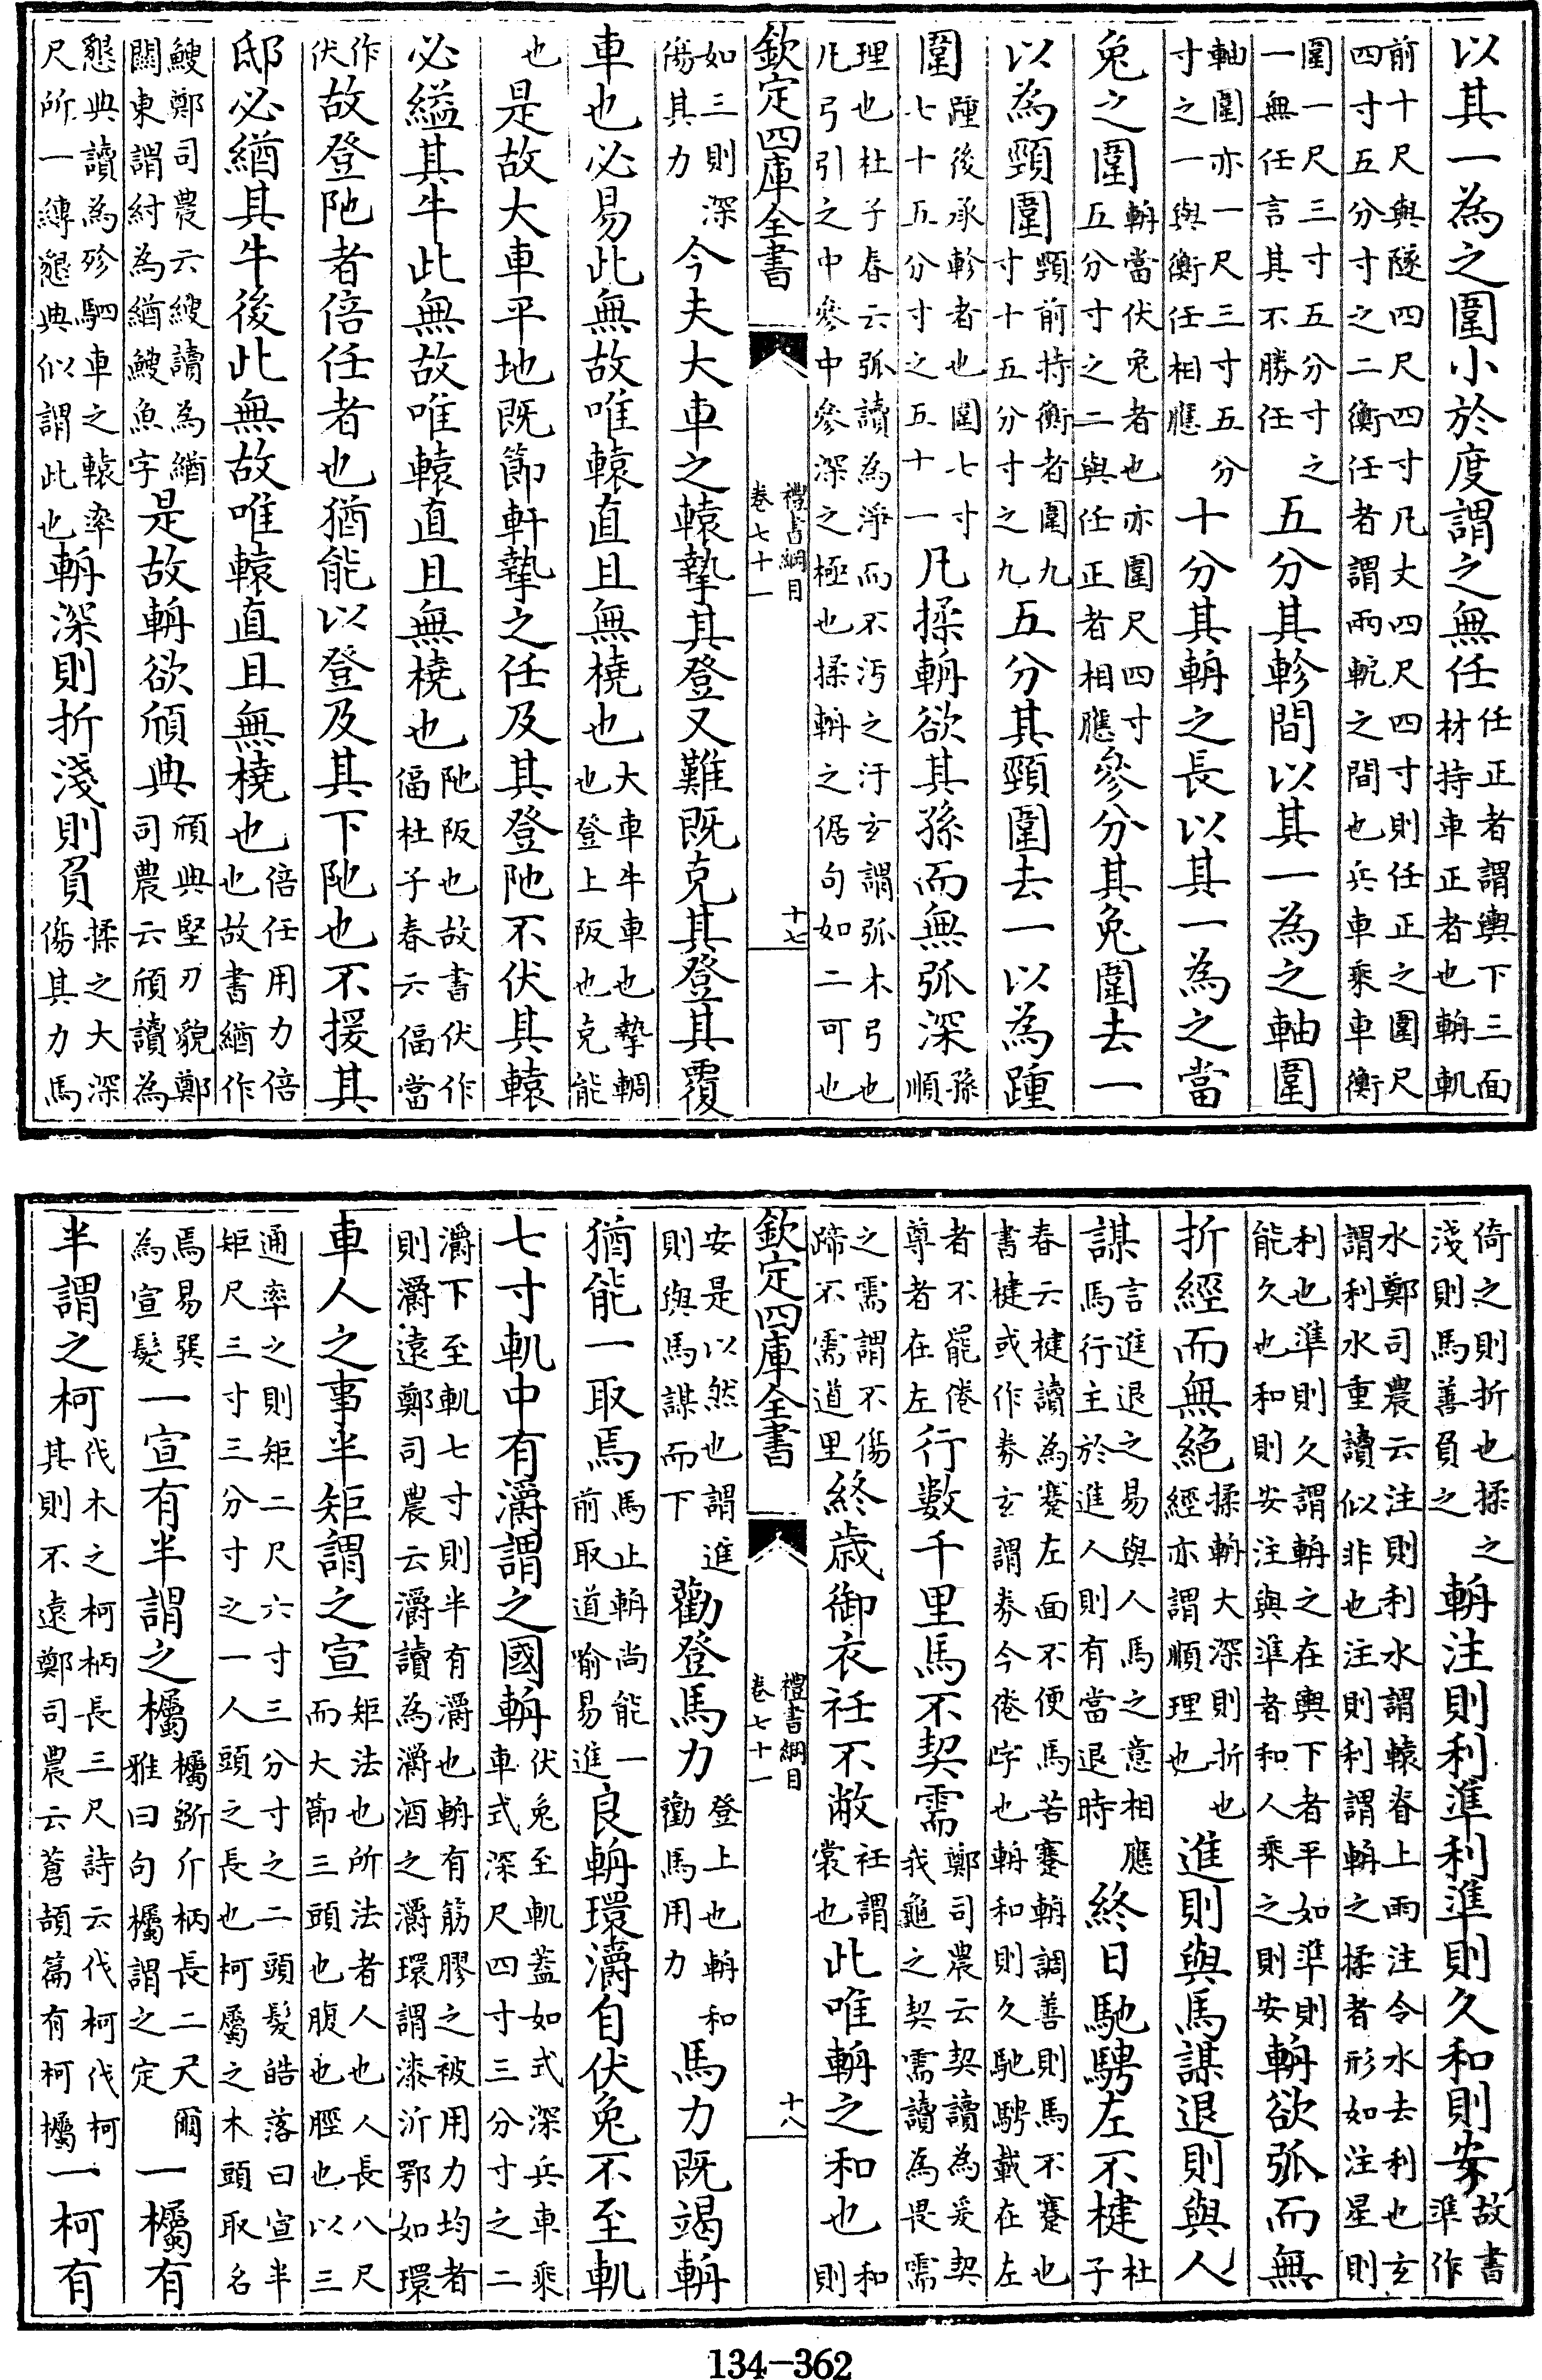 以其一為之圍小於度謂之無任任正者謂輿下三面材持車正者也輈軓
前十尺與隧四尺四寸凡丈四尺四寸則任正之圍尺
四寸五分寸之二衡任者謂兩軛之間也兵車乘車衡
圍一尺三寸五分寸之一無任言其不勝任五分其軫間以其一為之軸圍
軸圍亦一尺三寸五分寸之一與衡任相應十分其輈之長以其一為之當
兔之圍輈當伏兔者也亦圍尺四寸五分寸之二與任正者相應參分其兔圍去一
以為頸圍頸前持衡者圍九寸十五分寸之九五分其頸圍去一以為踵
圍踵後承軫者也圍七寸七十五分寸之五十一凡揉輈欲其孫而無弧深孫順
理也杜子春云弧讀為淨而不汚之汙玄謂弧木弓也
凡弓引之中參中參深之極也揉輈之倨句如二可也
欽定四庫全書 禮書綱目卷七十一 十七
如三則深傷其力今夫大車之轅摯其登又難既克其登其覆
車也必易此無故唯轅直且無橈也大車牛車也摯輖也登上阪也克能
也是故大車平地既節軒摯之任及其登阤不伏其轅
必縊其牛此無故唯轅直且無橈也阤阪也故書伏作偪杜子春云偪當
作伏故登阤者倍任者也猶能以登及其下阤也不援其
邸必緧其牛後此無故唯轅直且無橈也倍任用力倍也故書緧作
鰌鄭司農云鰌讀為緧關東謂紂為緧鰌魚字是故輈欲頎典頎典堅刃貌鄭司農云頎讀為
懇典讀為殄駟車之轅率尺所一縛懇典似謂此也輈深則折淺則負揉之大深傷其力馬
倚之則折也揉之淺則馬善負之輈注則利準利準則久和則安故書準作
水鄭司農云注則利水謂轅脊上雨注令水去利也玄
謂利水重讀似非也注則利謂輈之揉者形如注星則
利也準則久謂輈之在輿下者平如準則能久也和則安注與準者和人乘之則安輈欲弧而無
折經而無絕揉輈大深則折也經亦謂順理也進則與馬謀退則與人
謀言進退之易與人馬之意相應馬行主於進人則有當退時終日馳騁左不楗杜子
春云楗讀為蹇左面不便馬苦蹇輈調善則馬不蹇也
書楗或作劵玄謂劵今倦字也輈和則久馳騁載在左
者不罷倦尊者在左行數千里馬不契需鄭司農云契讀為爰契我龜之契需讀為畏需
之需謂不傷蹄不需道里終歲御衣衽不敝衽謂裳也此唯輈之和也和則
欽定四庫全書 禮書綱目卷七十一 十八
安是以然也謂進則與馬謀而下勸登馬力登上也輈和勸馬用力馬力既竭輈
猶能一取焉馬止輈尚能一前取道喻易進良輈環灂自伏兔不至軓
七寸軓中有灂謂之國輈伏兔至軓蓋如式深兵車乘車式深尺四寸三分寸之二
灂下至軓七寸則半有灂也輈有筋膠之被用力均者
則灂遠鄭司農云灂讀為灂酒之灂環謂漆沂鄂如環
車人之事半矩謂之宣矩法也所法者人也人長八尺而大節三頭也腹也脛也以三
通率之則矩二尺六寸三分寸之二頭髮皓落曰宣半
矩尺三寸三分寸之一人頭之長也柯屬之木頭取名
焉易巽為宣髮一宣有半謂之欘欘斲斤柄長二尺爾雅曰句欘謂之定一欘有
半謂之柯伐木之柯柄長三尺詩云伐柯伐柯其則不遠鄭司農云蒼頡篇有柯欘一柯有
134-362